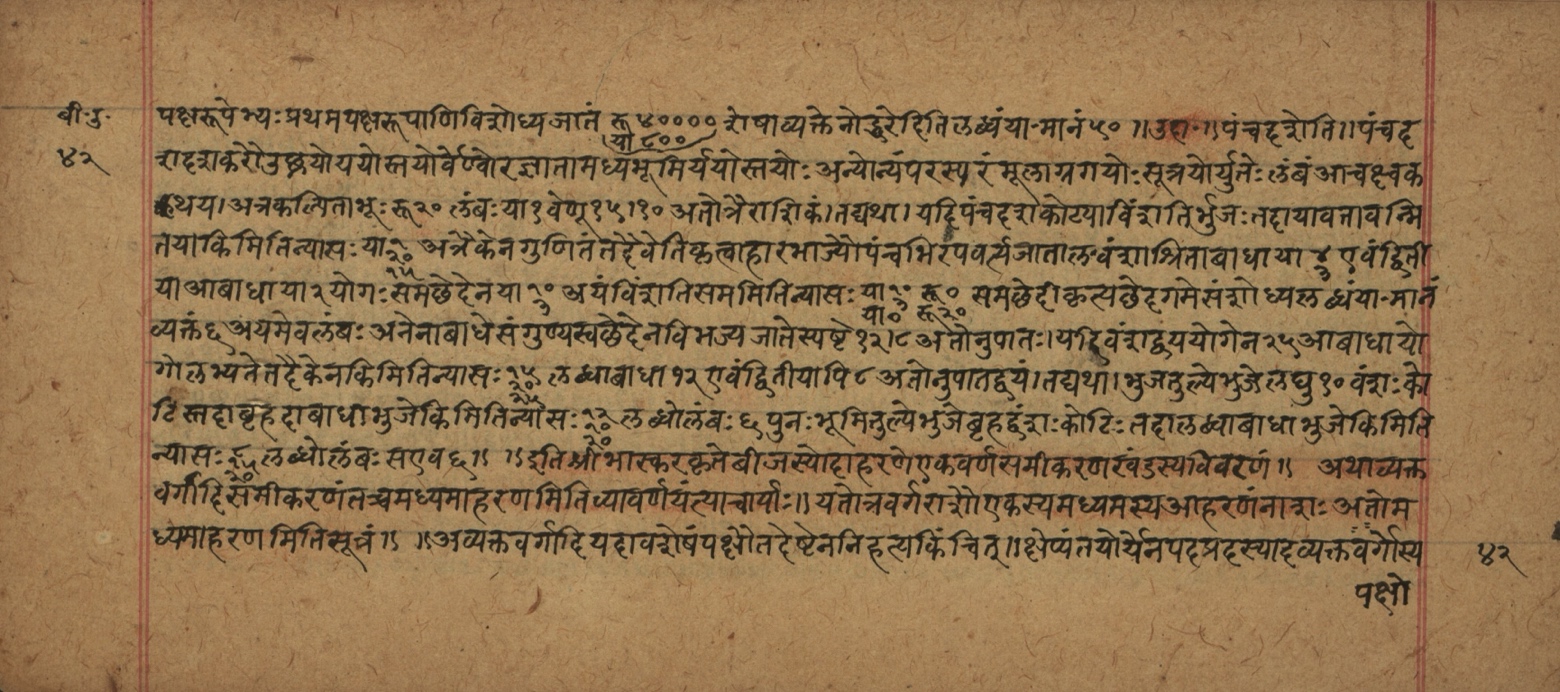 बी॰उ॰
४२
पक्षरूपेभ्यः प्रथमपक्षरूपाणि विशोध्य जातं रू ४०००० शेषाव्यक्तेनोद्धरेदिति लब्धं या॰मानं ५० ॥ उदा॰ ॥ पंचदशेति ॥ पंचद
या ८००
शदशकरोच्छ्रययोर्ययोस्तयोर्वेण्वोरज्ञातामध्यभूमिर्ययोस्तयोः अन्योन्यं परस्परं मूलाग्रगयोः सूत्रयोर्युतेः लंबं आचक्ष्व क
थय । अत्र कल्पिता भूः रू २० लंबः या १ वेणू १५ । १० अतोत्रैराशिकं । तद्यथा । यदि पंचदशकोट्या विंशतिर्भुजः तदा यावत्तावन्मि
तया किमिति न्यासः या २० अत्रैकेन गुणितं तदेवेति कृत्वा हारभाज्यौ पंचभिरपवर्त्य जाता लघुवंशाश्रिताबाधा या ४ एवं द्विती
१५ ३
या आबाधा या २ योगः समछेदेन या १० अयं विंशतिसममिति न्यासः या १० रू ० समछेदीकृत्य छेदगमे संशोध्य लब्धं या॰मानं
या ० रू २०
व्यक्तं ६ अयमेव लंबः अनेनाबाधे संगुण्य स्वछेदेन विभज्य जाते स्पष्टे १२ । ८ अतोनुपातः । यदि वंशद्वययोगेन २५ आबाधायो
गो लभ्यते तदैकेन किमिति न्यासः २५ लब्धाबाधा १२ एवं द्वितीयापि ८ अतोनुपातद्वयं । तद्यथा । भुजतुल्ये भुजे लघु १० वंशः को
टिस्तदा बृहदाबाधाभुजे किमिति न्यासः १२ लब्धो लंबः ६ पुनः भूमितुल्ये भुजे बृहद्वंशः कोटिः तदा लब्धाबाधाभुजे किमिति
न्यासः लब्धो लंबः स एव ६ ॥ ॥ इति श्रीभास्करकृते बीजस्योदाहरणे एकवर्णसमीकरणखंडस्य विवरणं ॥ अथाव्यक्त
वर्गादिसमीकरणं तच्च मध्यमाहरणमिति व्यावर्णयंत्याचार्याः ॥ यतोत्र वर्गराशौ एकस्य मध्यमस्य आहरणं नाशः अतो म
ध्यमाहरणमिति सूत्रं ॥ ॥ अव्यक्तवर्गादि यदावशेषं पक्षौ तदेष्टेन निहत्य किंचित् ॥ क्षेप्यं तयोर्येन पदप्रदस्यादव्यक्तवर्गोस्य
४२
पक्षो